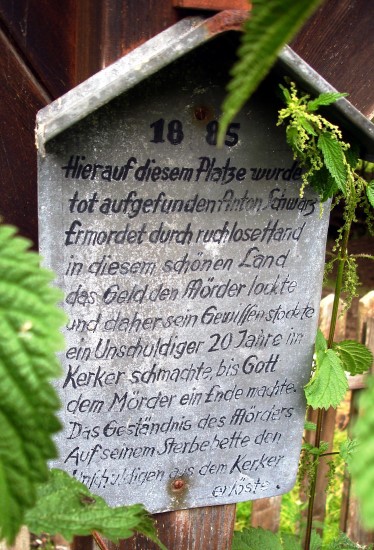 1885
Hier auf diesem Platze wurde
tot aufgefunden Anton Schwarz
Ermordet durch ruchlose Hand
in diesem schönen Land
das Geld den Mörder lockte
und daher sein Gewissen stockte
ein Unschuldiger 20 Jahre im
Kerker schmachte, bis Gott
dem Mörder ein Ende machte.
Das Geständnis des Mörders
Auf seinem Sterbebette den
Unschuldigen aus dem Kerker
erlöste.